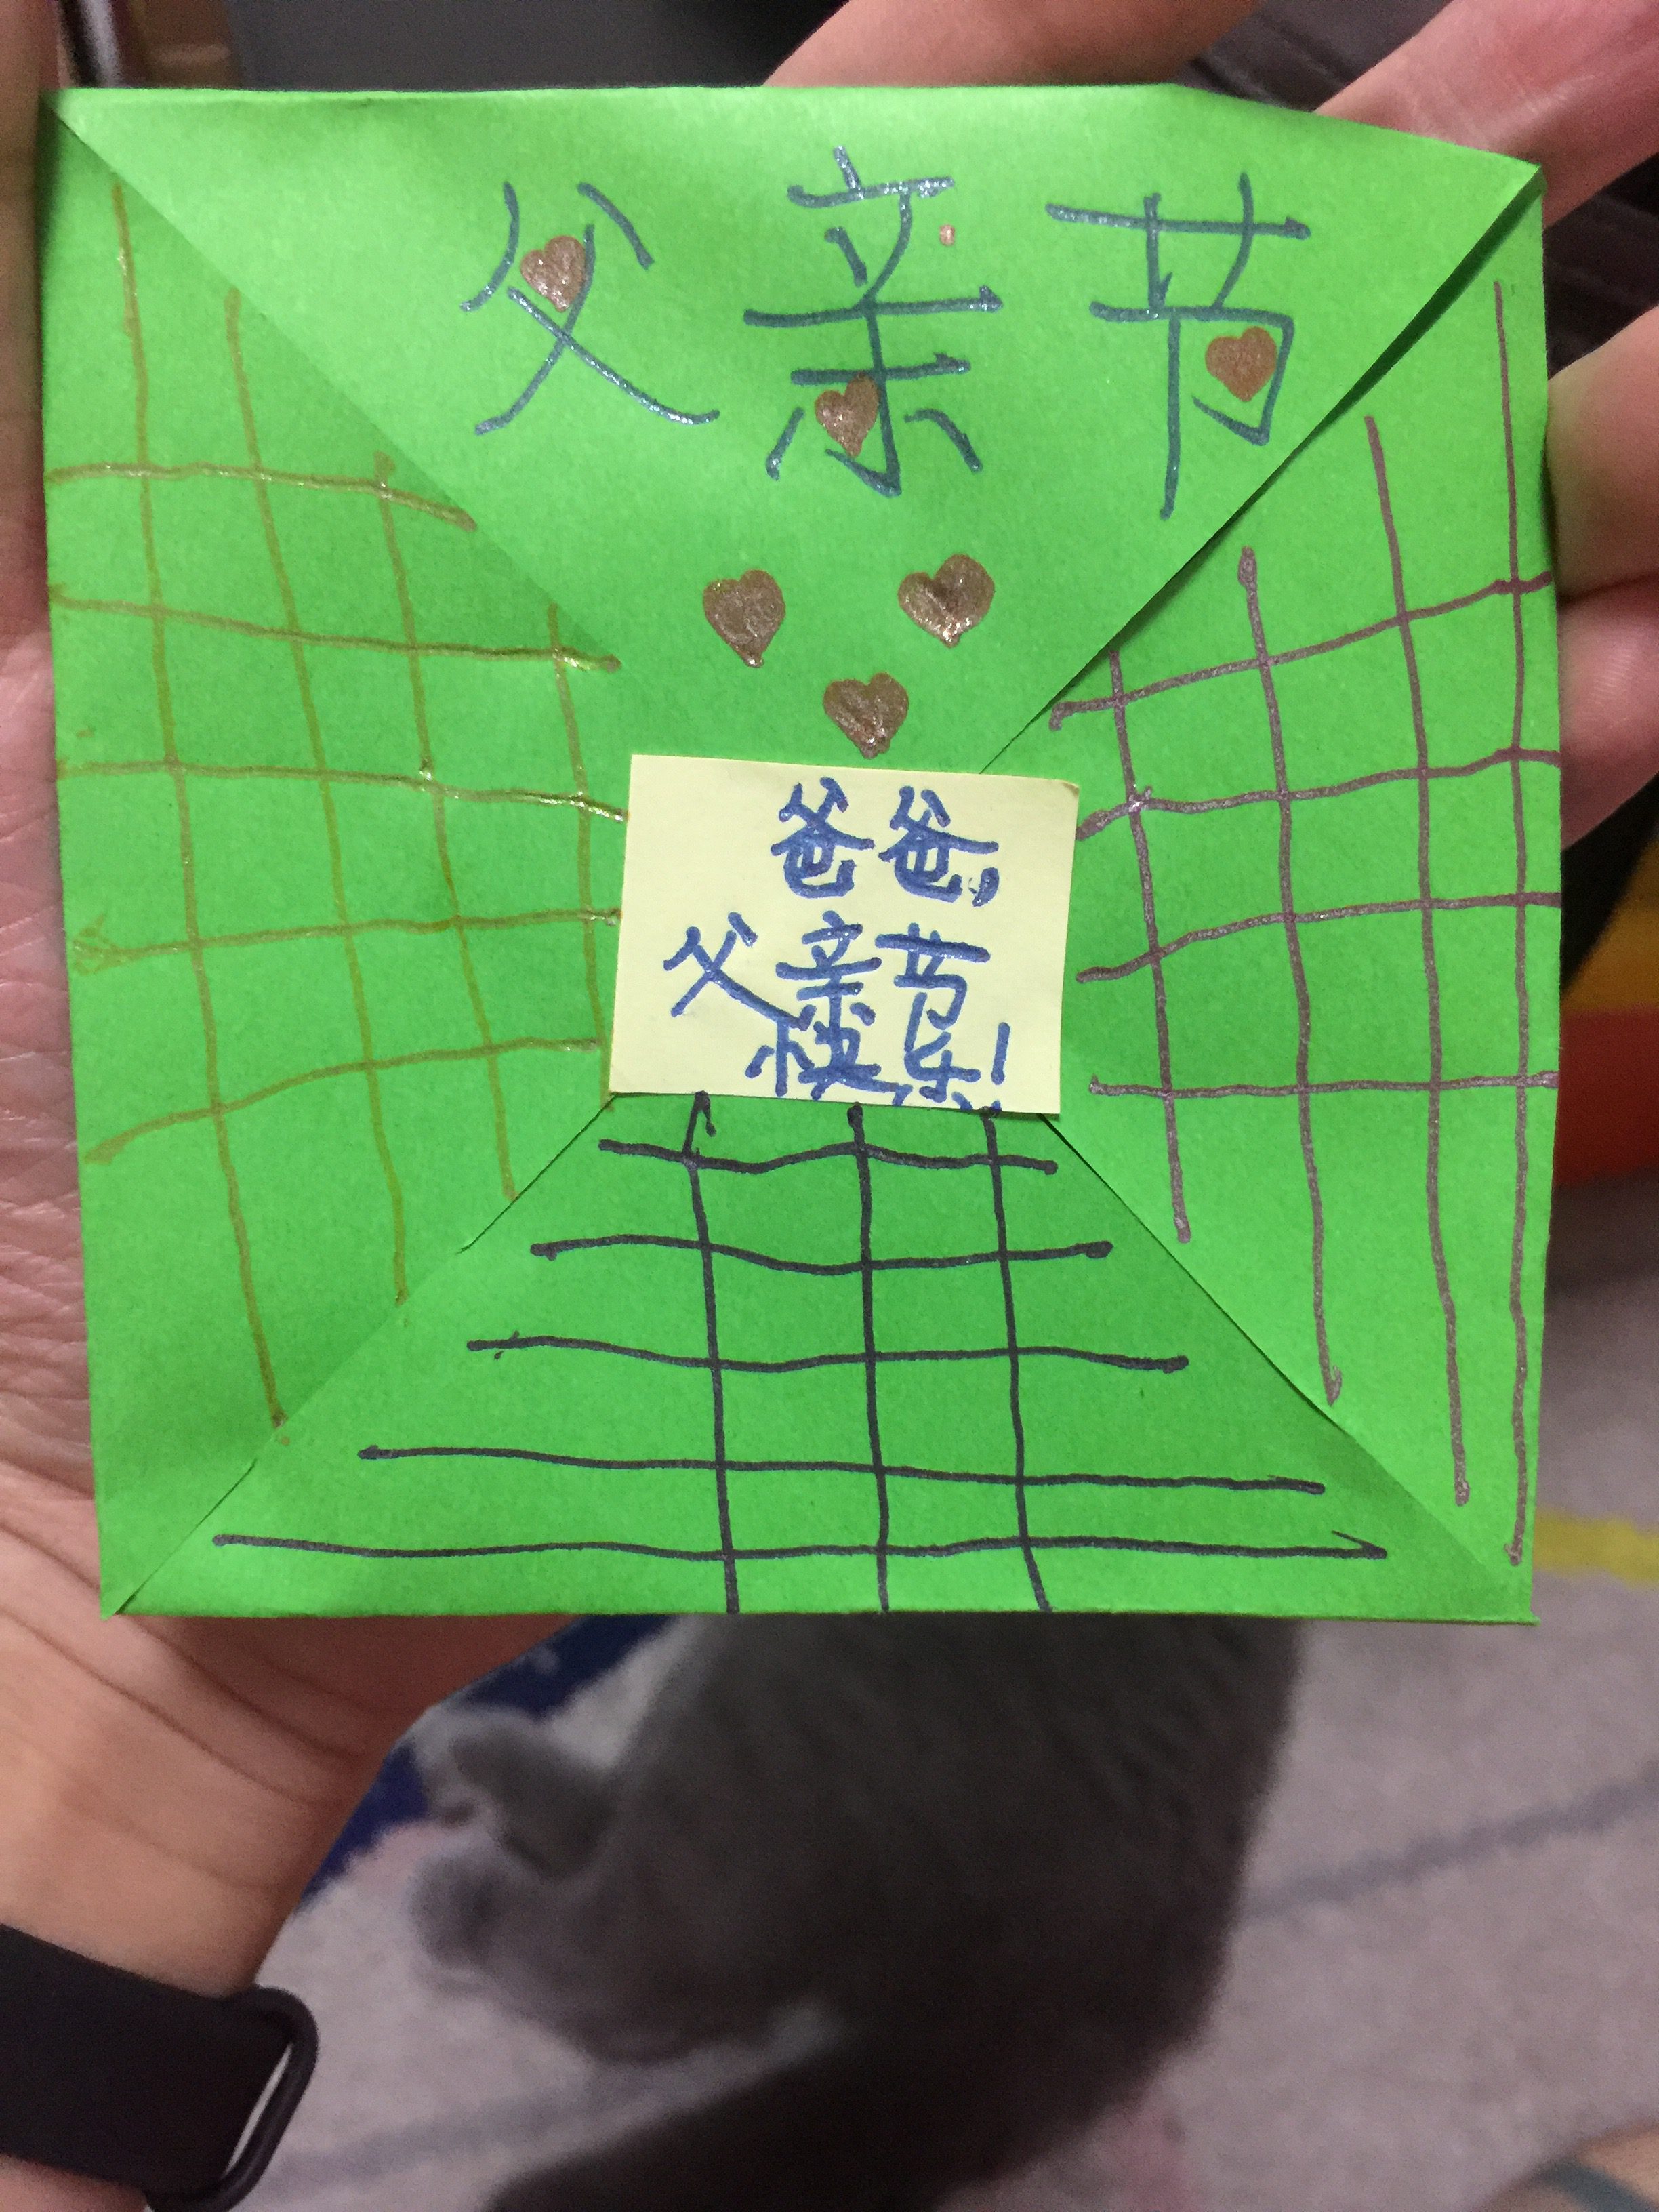 父亲节
爸爸,
父亲节
快乐!